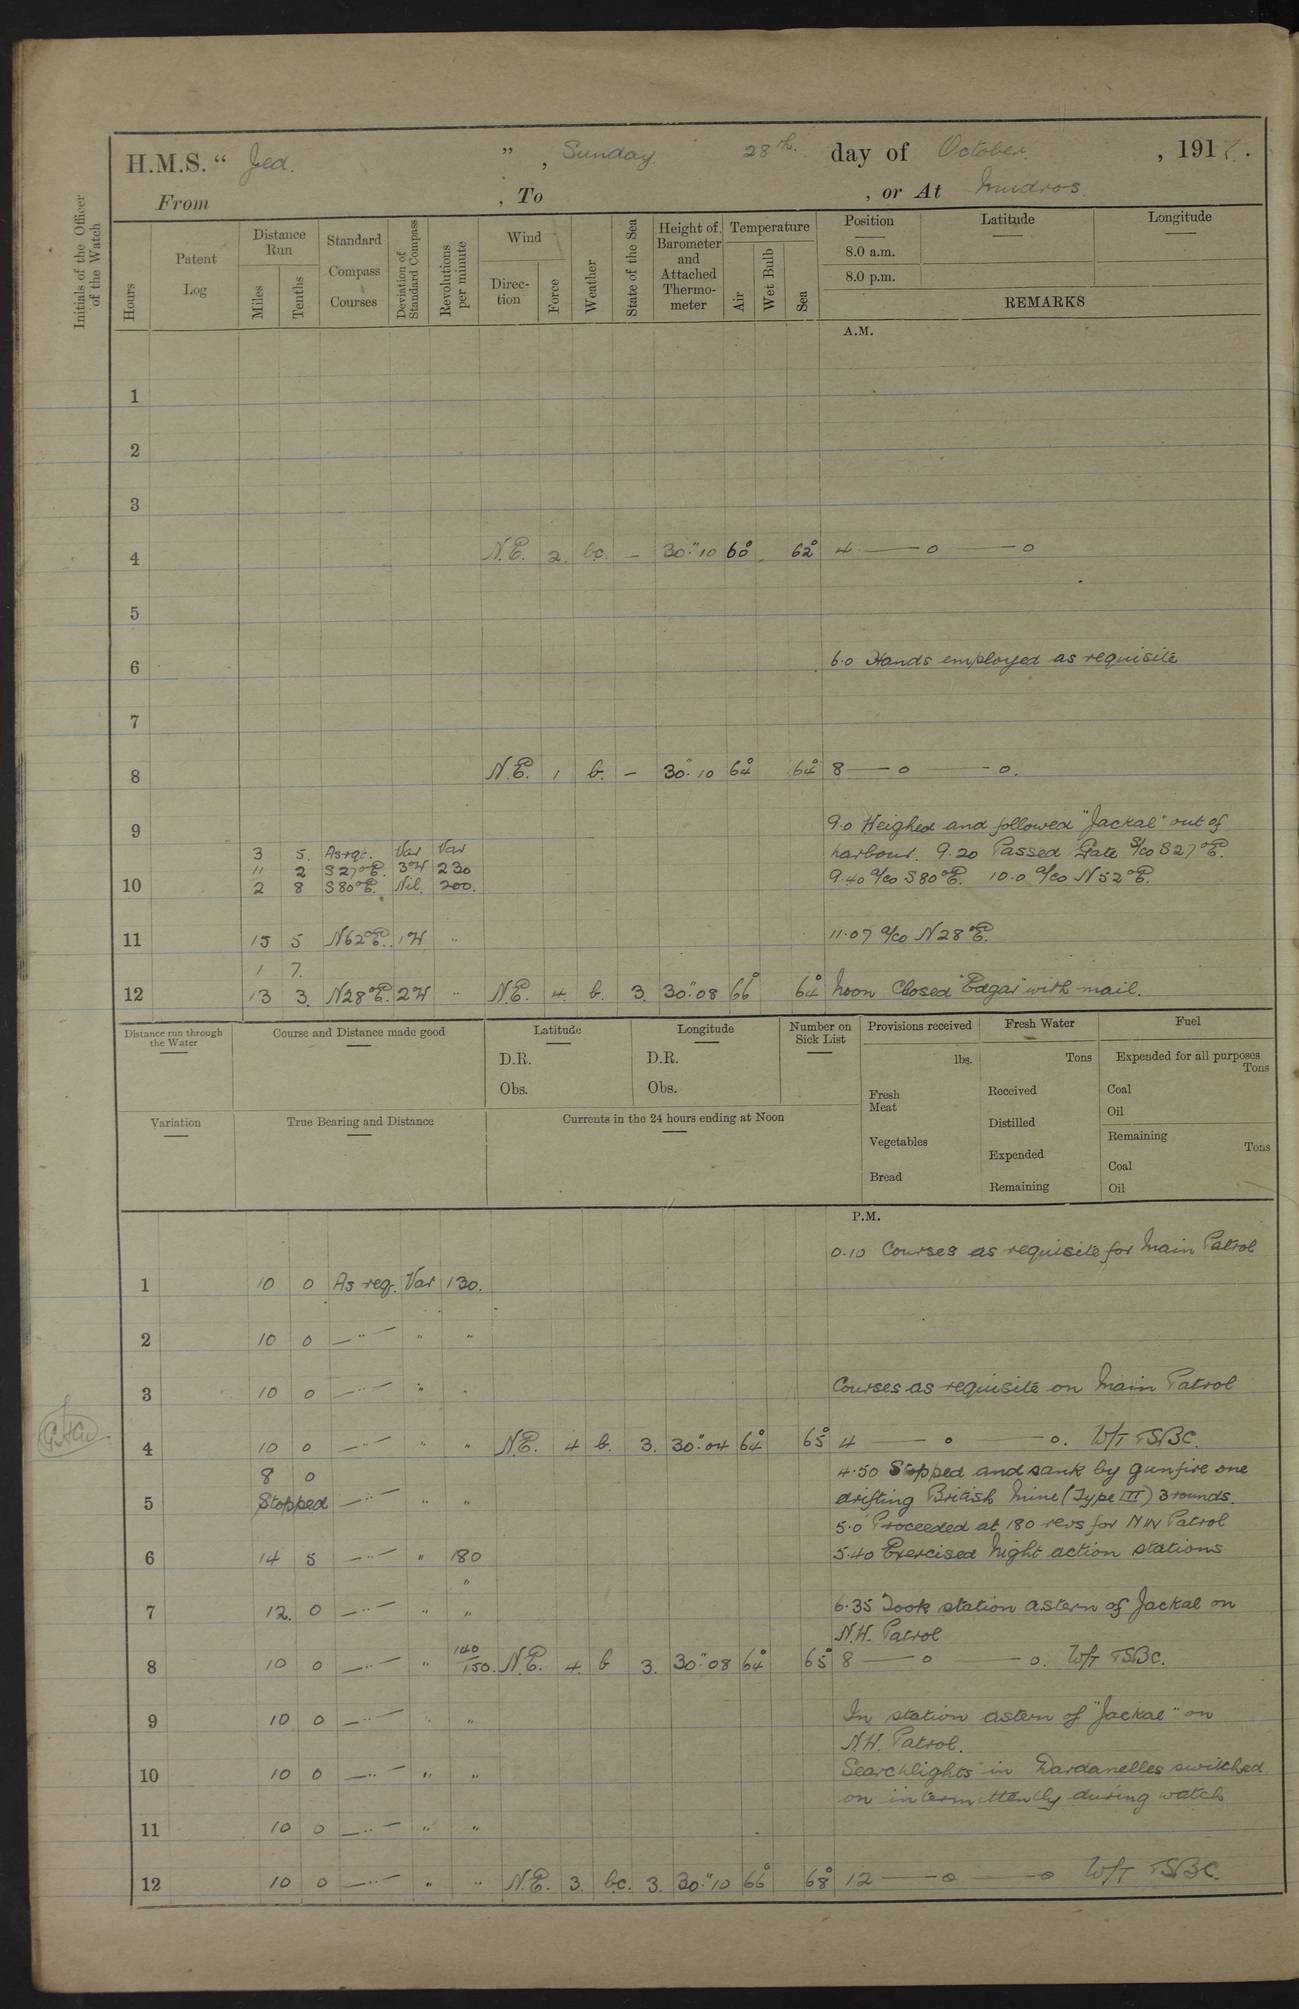 H.M.S. “ Jed. ” , Sunday. 28th. day of October. , 1917.
From , To , or At Mudros.
Initials of the Officer of the Watch
Hours
Patent Log
Distance Run
Miles
Tenths
Standard Compass Courses
Deviation of Standard Compass
Revolutions per minute
Wind
Direction
Force
Weather
State of the Sea
Height of Barometer and Attached Thermometer
Temperature
Air
Wet Bulb
Sea
Position
Latitude
Longitude
8.0 a.m.
8.0 p.m.
REMARKS
A.M.
1
2
3
4 N.E. 2 bc. — 30."10 60° 62° 4 —— o —— o
5
6 6.0 Hands employed as requisite
7
8 N.E. 1 b. — 30." 10 64° 64° 8 —— o —— o.
9 9.0 Weighed and followed "Jackal" out of
3 5. As rqr. Var Var harbour. 9.20 Passed Gate S/co S27°E.
" 2 S27°E. 3°W 230 9.40 a/co S80°E. 10.0 a/co N52°E.
10 2 8 S80°E. Nil. 200.
11 15 5 N62°E. 1W " 11.07 a/co N28°E.
1 7.
12 13 3. N28°E. 2W " N.E. 4. b. 3. 30."08 66° 64° Noon Closed "Edgar" with mail.
Distance run through the Water
Course and Distance made good
Latitude
D.R.
Obs.
Longitude
D.R.
Obs.
Number on Sick List
Provisions received
lbs.
Fresh Meat
Vegetables
Bread
Fresh Water
Tons
Received
Distilled
Expended
Remaining
Fuel
Expended for all purposes
Tons
Coal
Oil
Remaining
Tons
Coal
Oil
Variation
True Bearing and Distance
Currents in the 24 hours ending at Noon
P.M.
0.10 Courses as requisite for Main Patrol
1 10 0 As req. Var 130.
2 10 0 —"— " "
3 10 0 —"— " " Courses as requisite on Main Patrol
4 10 0 —"— " " N.E. 4 b. 3. 30."04 64° 65° 4 —— o —— o. W/T TSBC.
8 0 4.50 Stopped and sank by gunfire one
5 Stopped —"— " " drifting British Mine (Type III) 3 rounds.
5.0 Proceeded at 180 revs for NW Patrol
6 14 5 —"— " 180 5.40 Exercised Night action stations
"
7 12. 0 —"— " " 6.35 Took station astern of Jackal on
N.W. Patrol
8 10 0 —"— " 140/150. N.E. 4. b 3. 30."08 64° 65° 8 —— o —— o. W/T TSBC.
9 10 0 —"— " " In station astern of "Jackal" on
N.W. Patrol.
10 10 0 —"— " " Searchlights in Dardanelles switched
on intermittently during watch
11 10 0 —"— " "
12 10 0 —"— " " N.E. 3. bc. 3. 30."10 66° 68° 12 —— o —— o W/T TSBC.